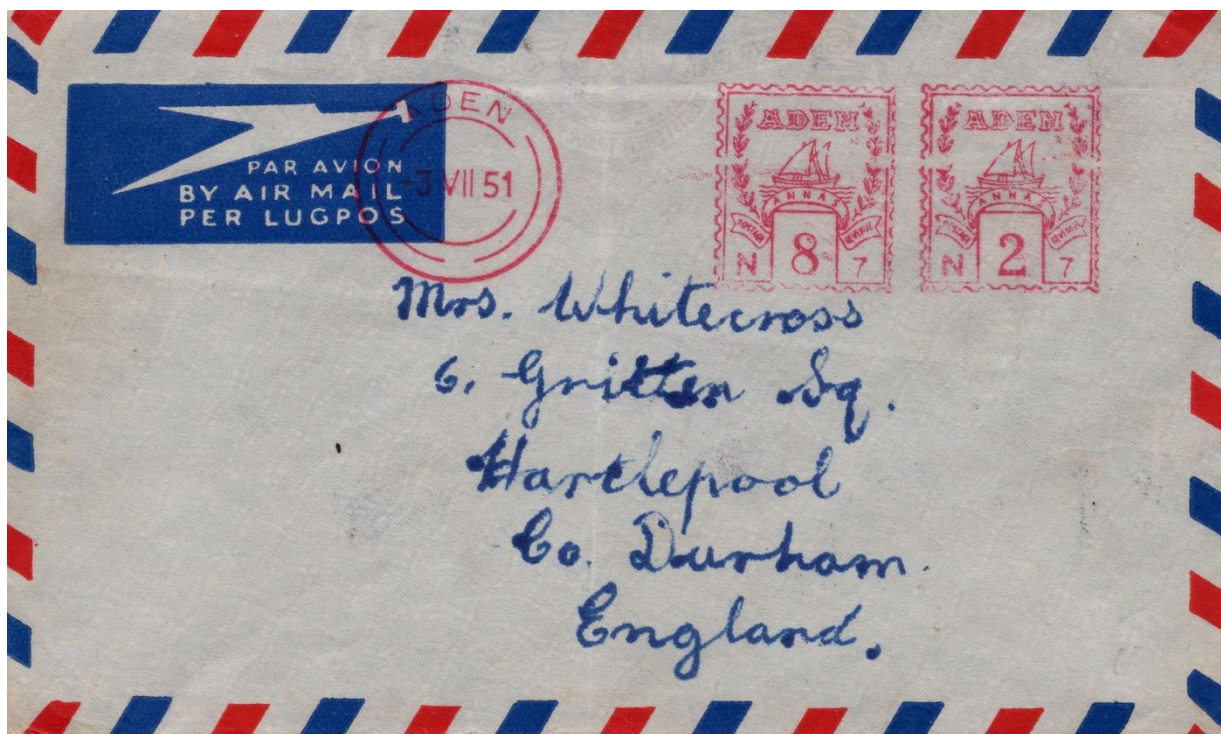 PAR AVION
BY AIR MAIL
PER LUGPOS
ADEN
-3 VII 51
ADEN
ANNAS
POSTAGE REVENUE
N 8 7
ADEN
ANNAS
POSTAGE REVENUE
N 2 7
Mrs. Whitecross
6. Gritten Sq.
Hartlepool
Co. Durham.
England.